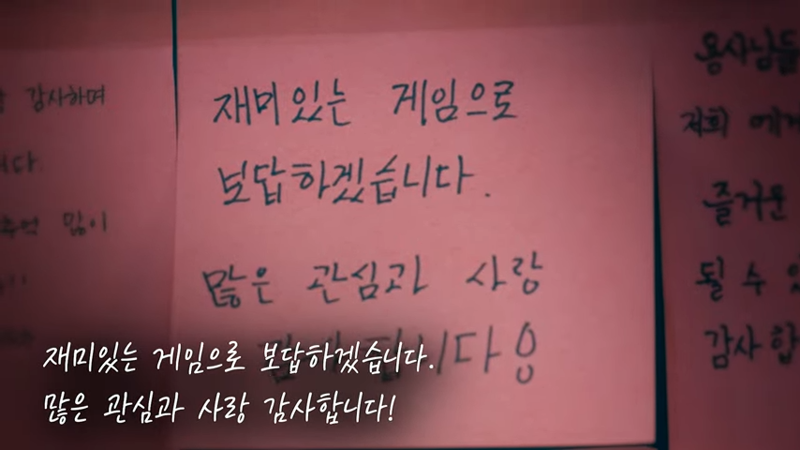 감사하며
니다.
추억 많이
재미있는 게임으로
보답하겠습니다.
많은 관심과 사랑
감사합니다!
용사님들
저희 에게
즐거운
될 수 있
감사합
재미있는 게임으로 보답하겠습니다.
많은 관심과 사랑 감사합니다!